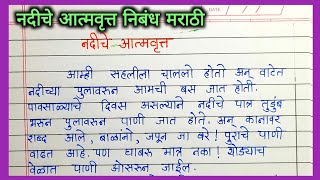 नदीचे आत्मवृत्त निबंध मराठी
नदीचे आत्मवृत्त
आम्ही सहलीला चाललो होतो अन् वाटेत
नदीच्या पुलावरून आमची बस जात होती.
पावसाळ्याचे दिवस असल्याने नदीचे पात्र तुडुंब
भरून पुलावरून पाणी जात होते. अन् कानावर
शब्द आले, बाळांनो, जपून जा बरे! पुराचे पाणी
वाढत आहे. पण घाबरू मात्र नका! थोड्याच
वेळात पाणी ओसरून जाईल.